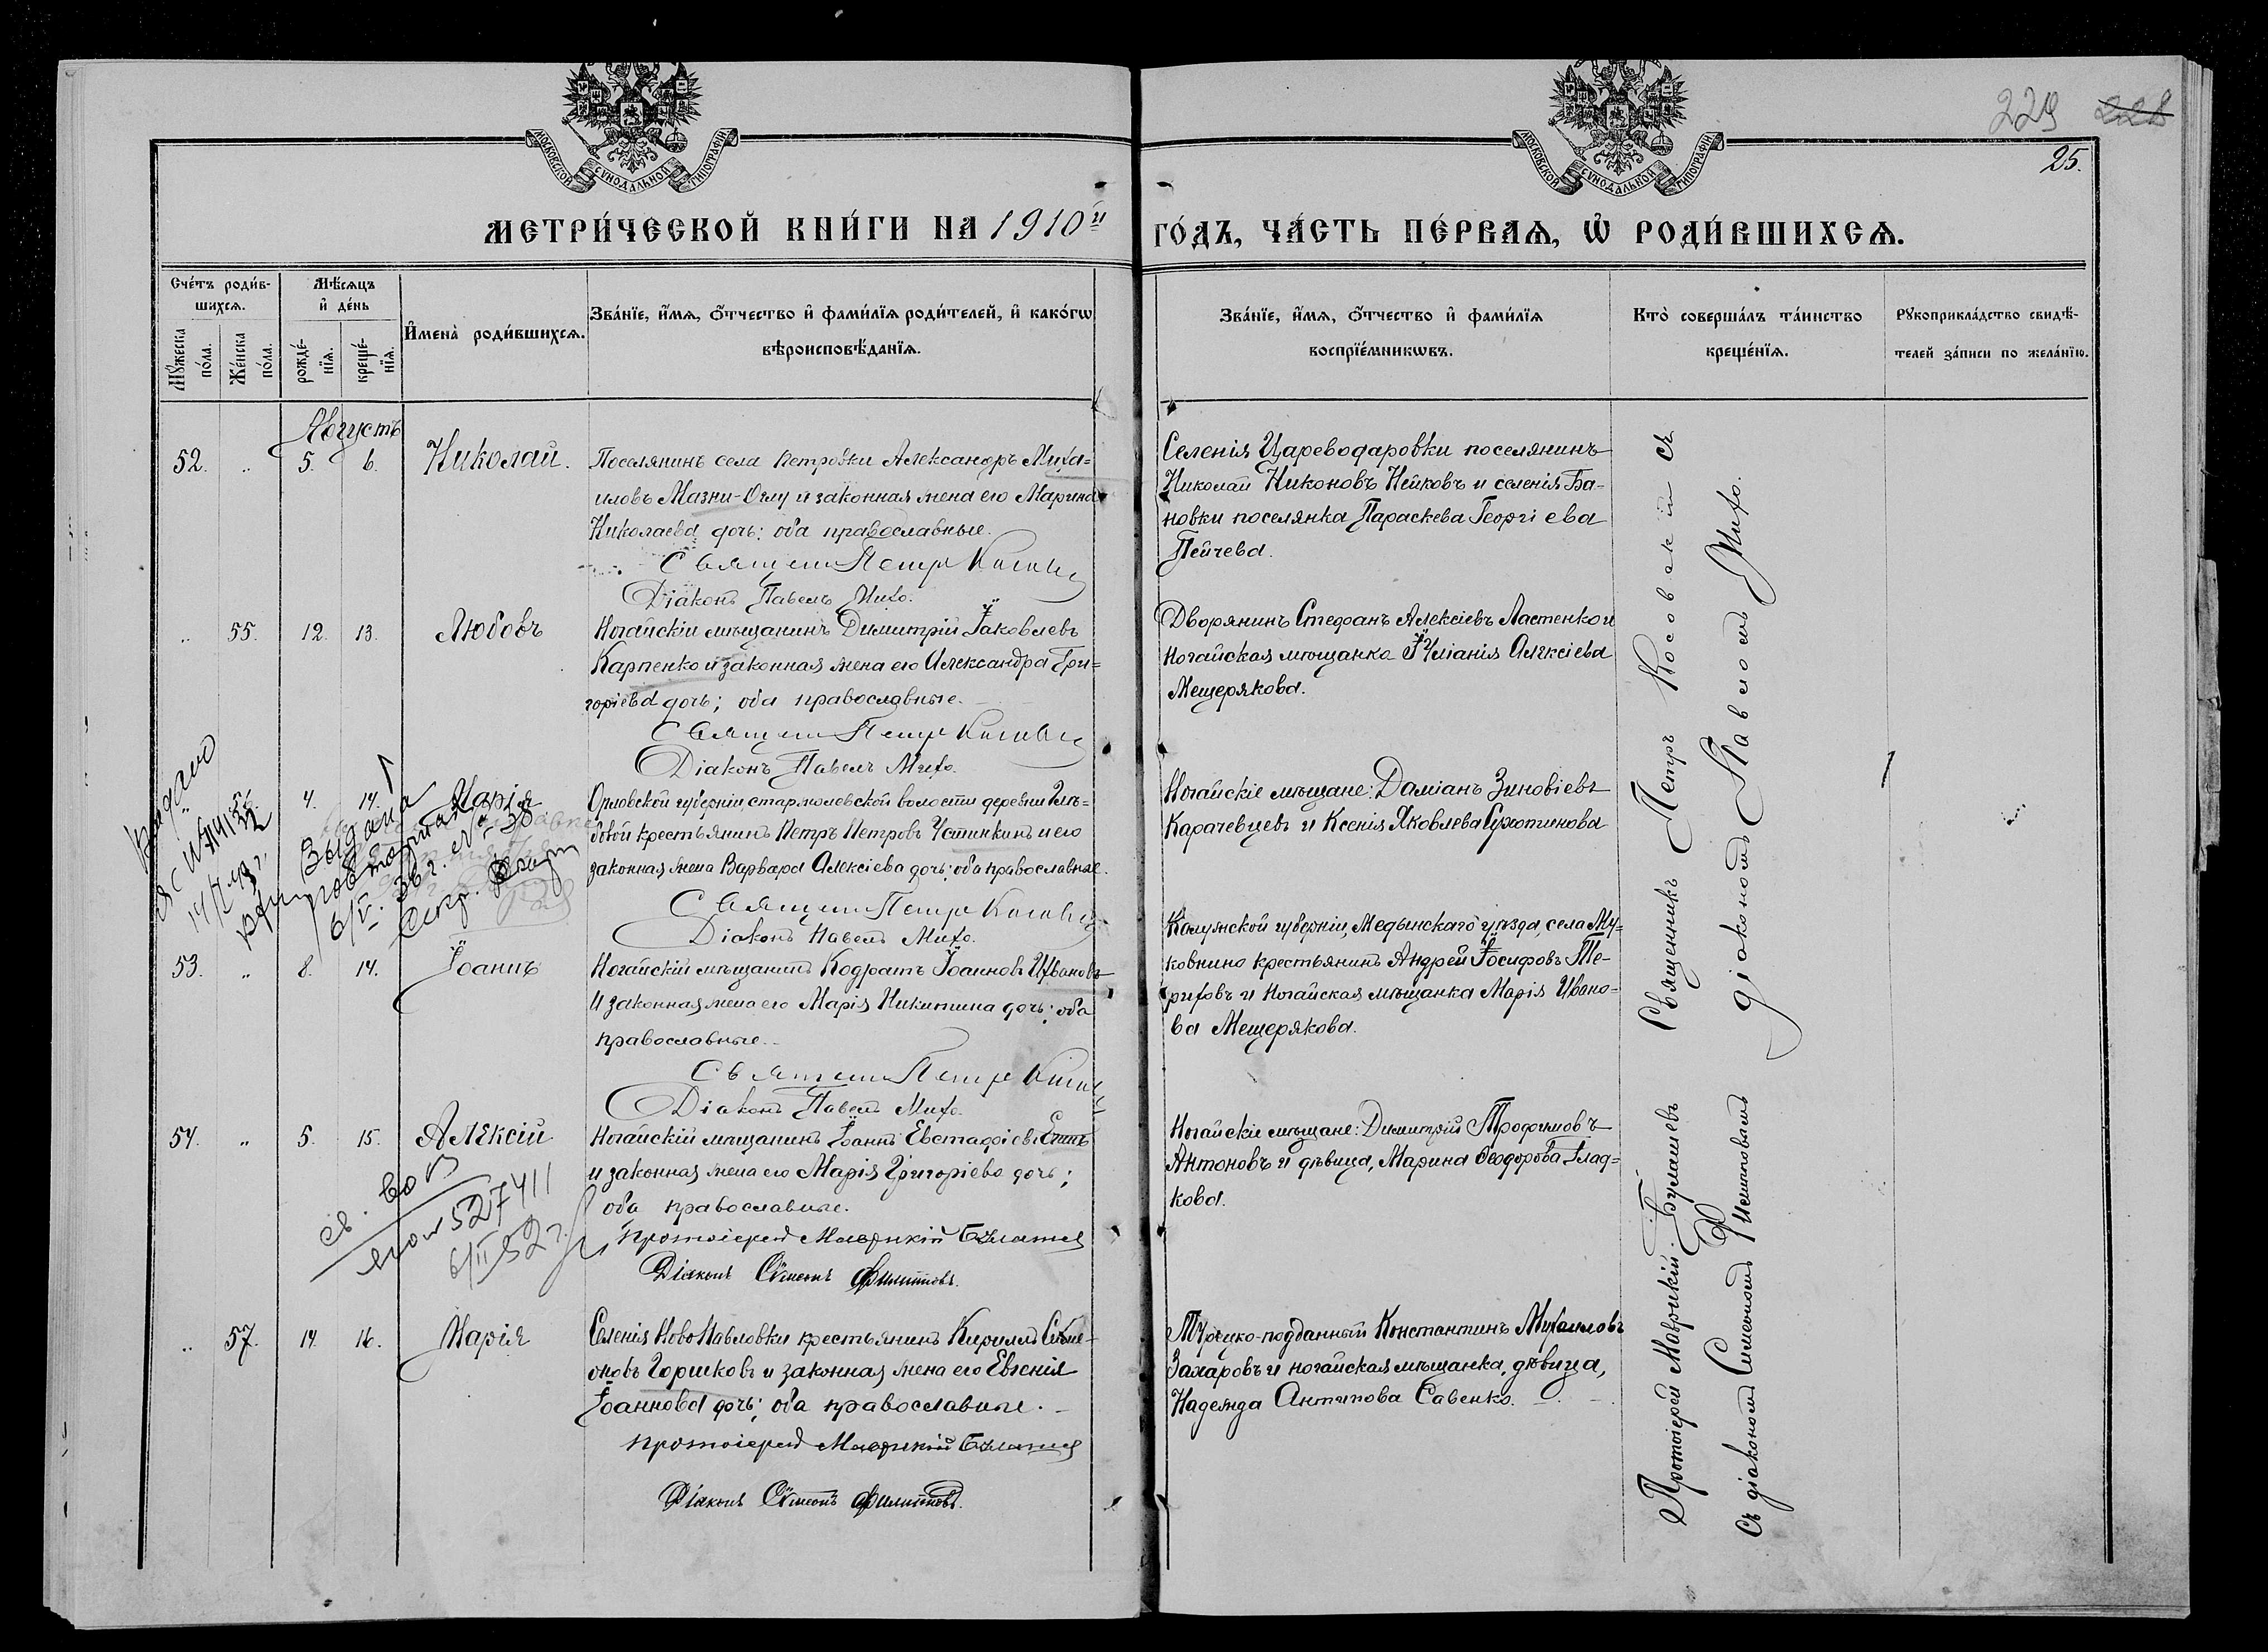 229 228
25.
МОСКОВСКОЙ СѴНОДАЛЬНОЙ ТИПОГРАФІИ
МОСКОВСКОЙ СѴНОДАЛЬНОЙ ТИПОГРАФІИ
МЕТРИ́ЧЕСКОЙ КНИ́ГИ НА 1910й ГО́ДЪ, ЧА́СТЬ ПЕ́РВАѦ, Ѡ҆ РОДИ́ВШИХСѦ.
Сче́тъ роди́в-
шихсѧ.
Мꙋ́жеска по́ла.
Же́нска по́ла.
Мѣ́сѧцъ
и҆ де́нь
рожде́-нїѧ.
креще́-нїѧ.
И҆мена̀ роди́вшихсѧ.
Зва́нїе, и҆́мѧ, ѻ҆́тчество и҆ фами́лїѧ роди́телей, и҆ како́гѡ
вѣроисповѣ́данїѧ.
Зва́нїе, и҆́мѧ, ѻ҆́тчество и҆ фами́лїѧ
воспрїе́мникѡвъ.
Кто̀ соверша́лъ та́инство
креще́нїѧ.
Рꙋкоприкла́дство свидѣ́-
телей за́писи по жела́нїю.
Августъ
52. „ 5. 6. Николай.
Поселянинъ села Петровки Александръ Миха-
иловъ Мазни-Оглу и законная жена его Марина
Николаева дочь; оба православные.
Священ Петръ
Діаконъ Павелъ Михо.
Селенія Цареводаровки поселянинъ
Николай Никоновъ Нейковъ и селенія Ба-
новки поселянка Параскева Георгіева
Пейчева.
„ 55. 12. 13. Любовь
Ногайскій мѣщанинъ Димитрій Іаковлевъ
Карпенко и законная жена его Александра Гри-
горіева дочь; оба православные.
Священ Петръ
Діаконъ Павелъ Михо.
Дворянинъ Стефанъ Алексіевъ Ластенко и
Ногайская мѣщанка Іуліанія Алексіева
Мещерякова.
4. 14. Марія
Орловской губерніи, волости деревни
крестьянинъ Петръ Петровъ Устинкинъ и его
законная жена Варвара Алексіева дочь; оба православные.
Священ Петръ
Діаконъ Павелъ Михо.
Ногайскіе мѣщане: Даміанъ Зиновіевъ
Карачевцевъ и Ксенія Яковлева Сухотинова
Выдано
Выдана
6/V. 36 г. № 38
Секр.
53. „ 8. 14. Іоаннъ
Ногайскій мѣщанинъ Кодратъ Іоанновъ Ивановъ
и законная жена его Марія Никитина дочь; оба
православные.
Священ Петръ
Діаконъ Павелъ Михо.
Калужской губерніи, Медынскаго уѣзда, села Му-
ковнино крестьянинъ Андрей Іосифовъ Те-
риховъ и Ногайская мѣщанка Марія Ивано-
ва Мещерякова.
54. „ 5. 15. Алексій
Ногайскій мѣщанинъ Іоаннъ Евстафіевъ
и законная жена его Марія Григоріева дочь;
оба православные.
Протоіерей Маврикій Булашев
Діаконъ Сѵмеонъ Филипповъ.
Ногайскіе мѣщане: Димитрій Трофимовъ
Антоновъ и дѣвица, Марина Ѳеодорова Глад-
кова.
св.
527411
6/II 52 г.
„ 57. 14. 16. Марія
Селенія НовоПавловки крестьянинъ Кириллъ Сѵме-
оновъ Горшковъ и законная жена его Евгенія
Іоаннова дочь; оба православные.
Протоіерей Маврикій Булашев
Діаконъ Сѵмеонъ Филипповъ.
Турецко-подданный Константинъ Михаиловъ
Захаровъ и ногайская мѣщанка, дѣвица,
Надежда Антипова Савенко.
Священникъ Петръ Косовскій съ
діакономъ Павломъ Михо.
Протоіерей Маврикій Булашевъ
съ діакономъ Симеономъ Филипповымъ